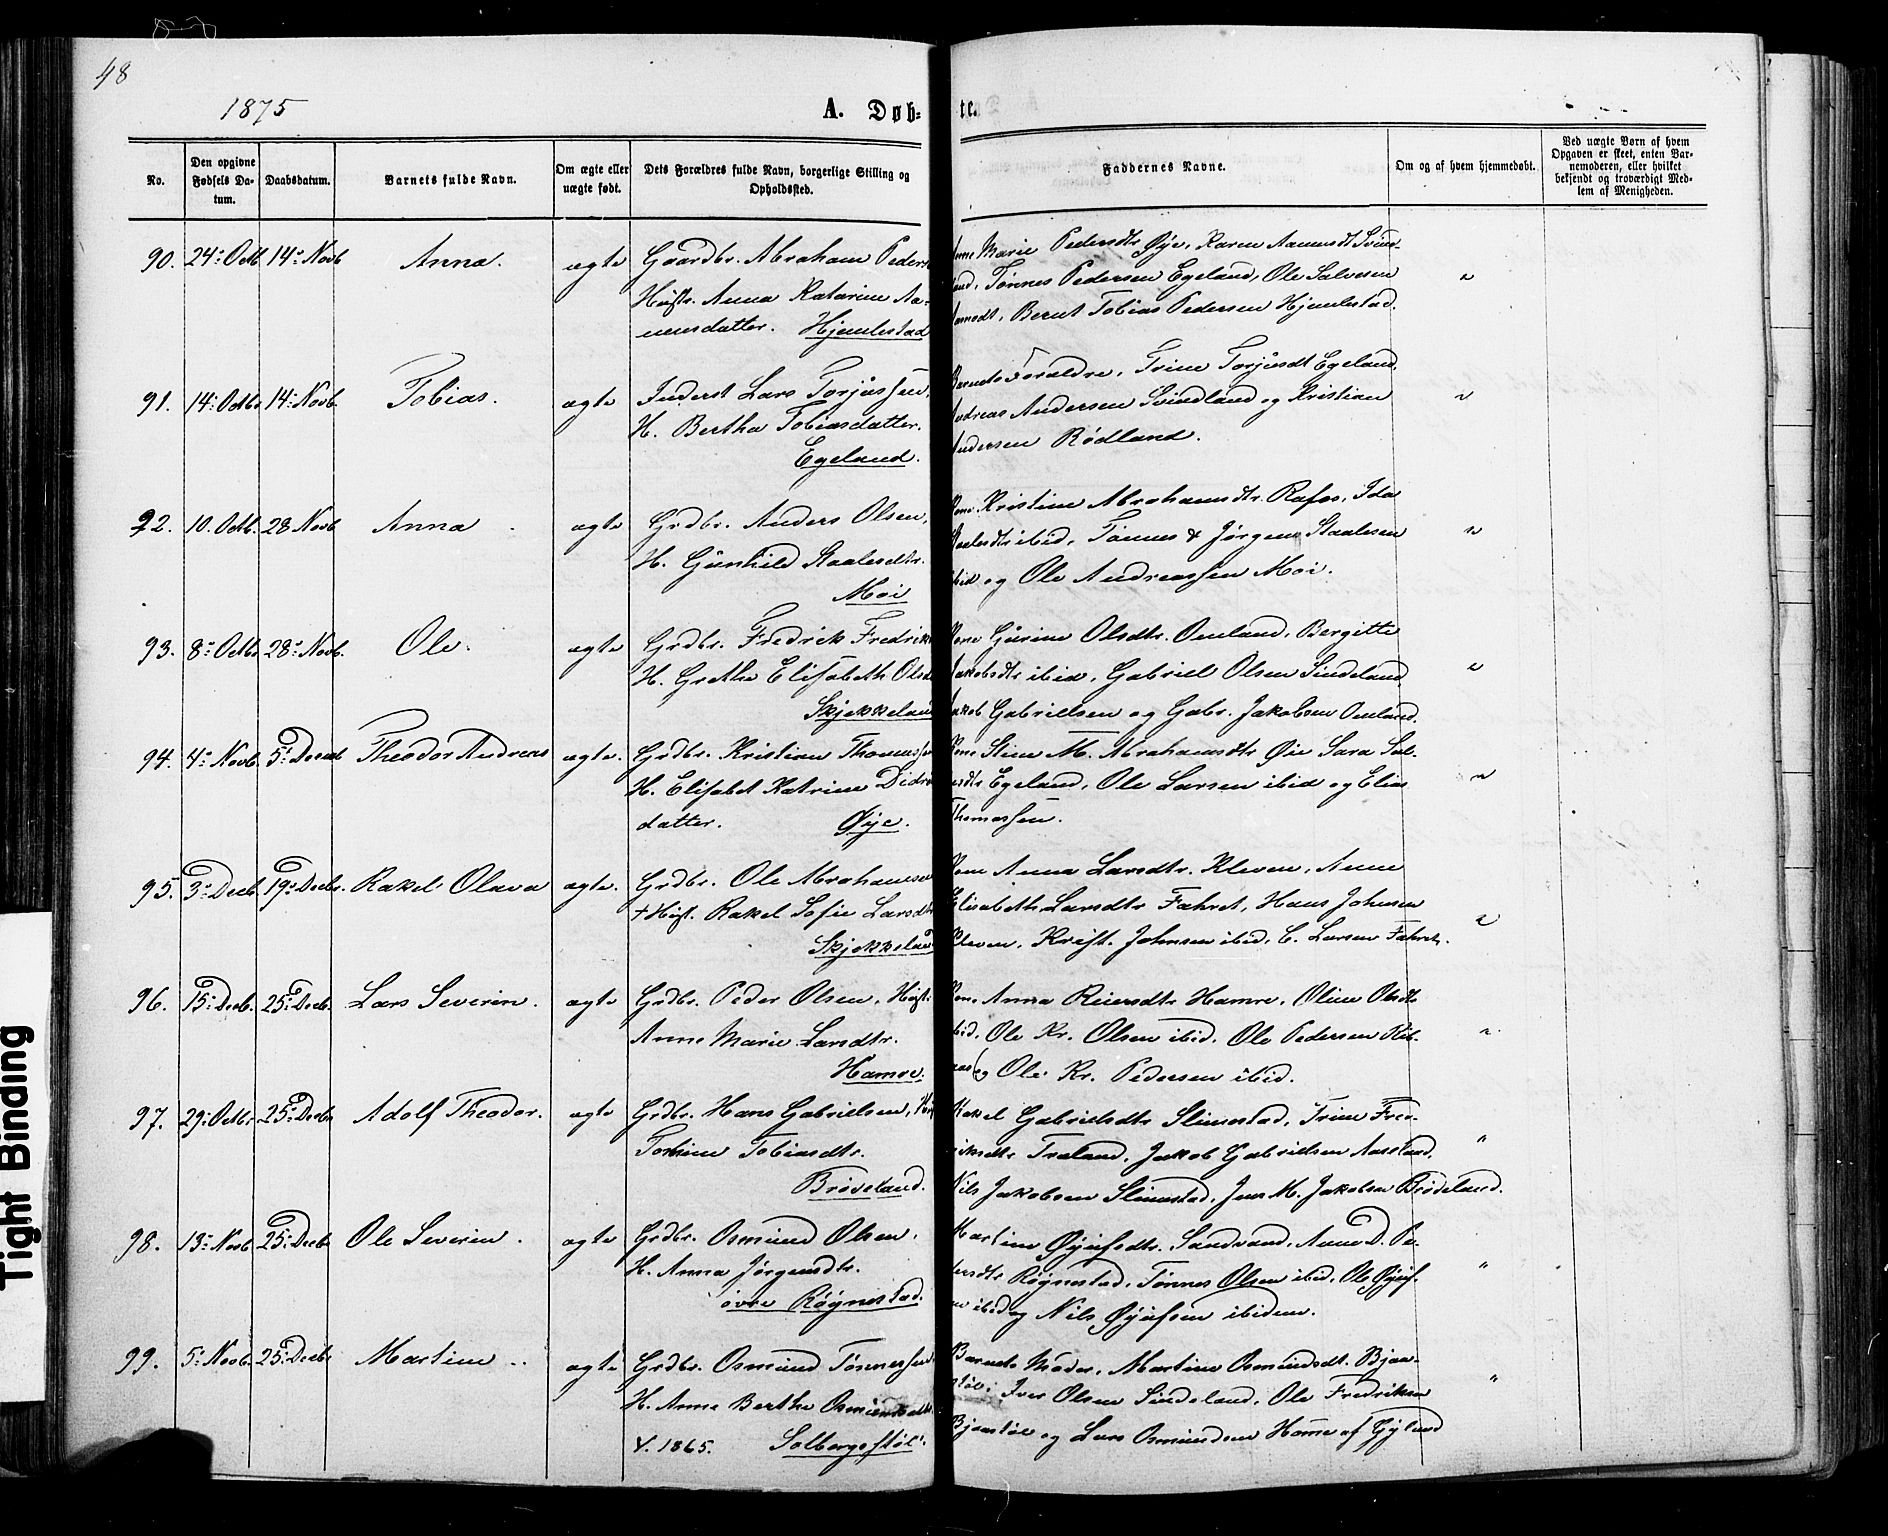 48
1875
A. Døb- te.
No.
Den opgivne Fødsels Da- tum.
Daabsdatum.
Barnets fulde Navn.
Om ægte eller uægte født.
Dets Forældres fulde Navn, borgerlige Stilling og Opholdssted.
Faddernes Navne.
Om og af hvem hjemmedøbt.
Ved uægte Børn af hvem Opgaven er skeet, enten Bar- nemoderen, eller hvilket bekjendt og troværdigt Med- lem af Menigheden.
90. 24de Octb. 14de Novb Anna. ægte Gaardbr. Abraham Peders
Hustr. Anna Katarine Aa-
nensdatter. Hjemlestad
Marie Pedersdtr Øye, Karen Aanensdt Svind-
Tønnes Pedersen Egeland, Ole Salvesen
Bernt Tobias Pedersen Hjemlestad.
91. 14de Octbr 14de Novb. Tobias. ægte Inderst Lars Torjussen,
H. Bertha Tobiasdatter.
Egeland.
Barnets Forældre, Trine Torjusdt Egeland,
Andreas Andersen Svindland og Kristian
Andersen Rødland.
92. 10. Octb. 28 Novb Anna ægte Grdbr. Anders Olsen,
H. Gunhild Staalesdtr.
Moi
Kone Kristine Abrahamsdtr. Rafos, Ida
ibid, Tønnes & Jørgen Staalesen
ibid og Ole Andreassen Moi.
93. 8de Octbr 28de Novb. Ole. ægte Grdbr. Fredrik Fredrik
H. Grethe Elisabeth Olsd
Skjekkeland
Kone Gurine Olsdtr. Omland, Bergitte
Jakobsdtr ibid, Gabriel Olsen Sindeland
Jakob Gabrielsen og Gabr. Jakobsen Omland.
94. 4de Novb. 5te Decemb Theodor Andreas ægte. Grdbr. Kristian Thomassen
H. Elisabet Katrine Didri
datter. Øye.
Kone Stine M. Abrahamsdtr Øie Sara Sal-
Egeland, Ole Larsen ibid og Elias
Thomassen.
95. 3de Decb. 19de Decbr. Rakel Olava ægte. Grdbr. Ole Abrahamsen
+ Hust. Rakel Sofie Larsdtr
Skjekkeland
Kone Anna Larsdtr. Kleven, Anne
Elisabeth Larsdtr Fahret, Hans Johnsen
Kleven, Krist. Johnsen ibid, C. Larsen Fahret.
96. 15de Decb. 25de Decb. Lars Severin. ægte Grdbr. Peder Olsen, Hust.
Anne Marie Larsdtr.
Hamre.
Kone Anna Reiersdtr Hamre, Oline Olsdtr
ibid, Ole Kr. Olsen ibid. Ole Pedersen
og Ole Kr. Pedersen ibid.
97. 29de Octbr 25de Decbr Adolf Theodor. ægte Grdbr. Hans Gabrielsen,
Tomine Tobiasdtr.
Brøveland.
Rakel Gabrielsdtr Slimestad, Trine Fred-
riksdtr Træland, Jakob Gabrielsen
Nils Jakobsen Slimestad, Jens M. Jakobsen Brødeland.
98. 13de Novb 25de Decbr Ole Severin. ægte Grdbr. Osmund Olsen,
H. Anna Jørgensdtr.
øvre Røynestad.
Martine Øyufsdtr. Sandvand, Anne D. Pe-
dersdtr Røynestad, Tønnes Olsen ibid, Ole Øyuf-
ibid og Nils Øyufsen ibidem.
99. 5te Novb. 25de Decbr Martine ægte Grdbr. Osmund Tønnessen
H. Anne Bertha Osmundsdtr
1865. Solbergstøl.
Barnets Moder, Martine Osmundsdt. Bjon-
støl, Iver Olsen Sindeland, Ole Fredriksen
Bjonstøl og Lars Osmundsen Homme af Gyland
Tight Binding